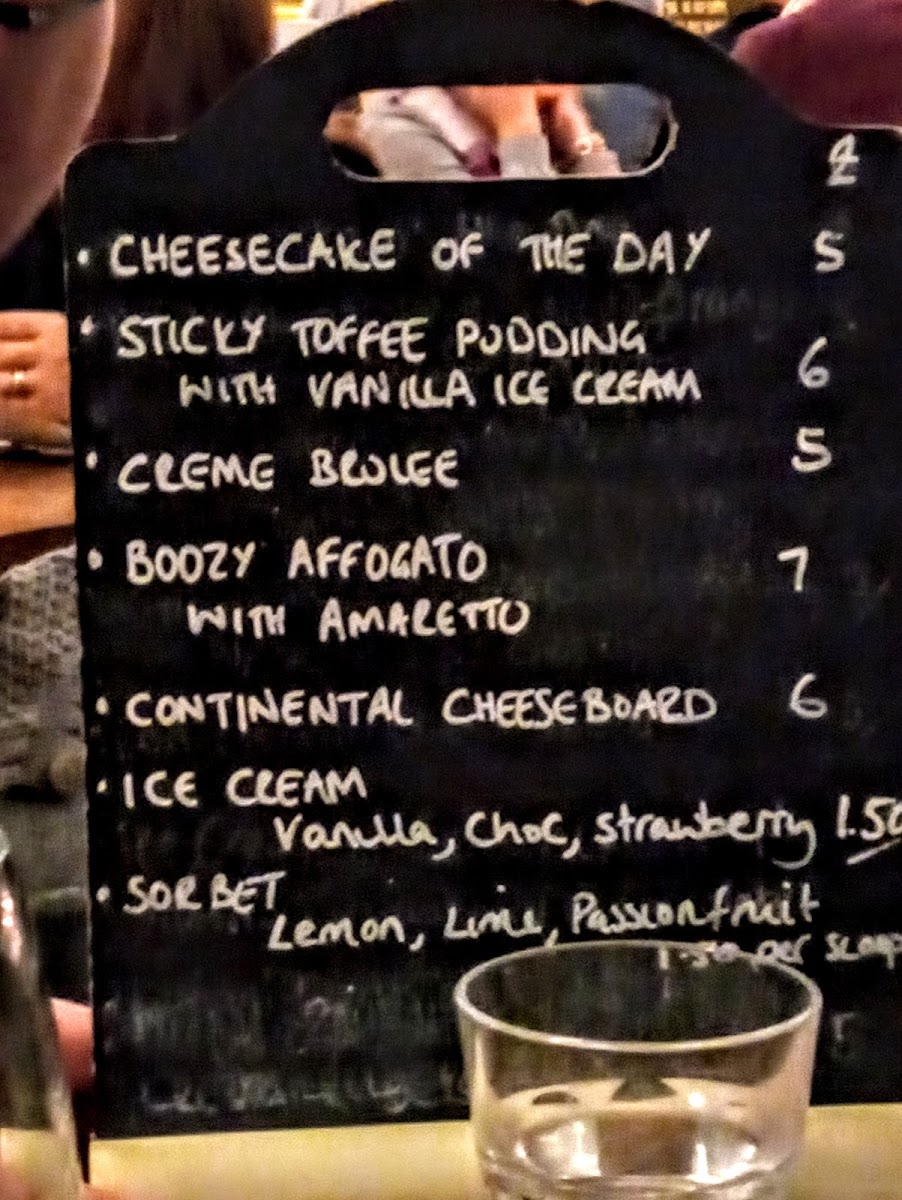 £
• CHEESECAKE OF THE DAY 5
• STICKY TOFFEE PUDDING
WITH VANILLA ICE CREAM 6
• CREME BRULEE 5
• BOOZY AFFOGATO 7
WITH AMARETTO
• CONTINENTAL CHEESEBOARD 6
• ICE CREAM
Vanilla, Choc, strawberry 1.50
• SORBET
Lemon, Lime, Passionfruit
1.50 per scoop